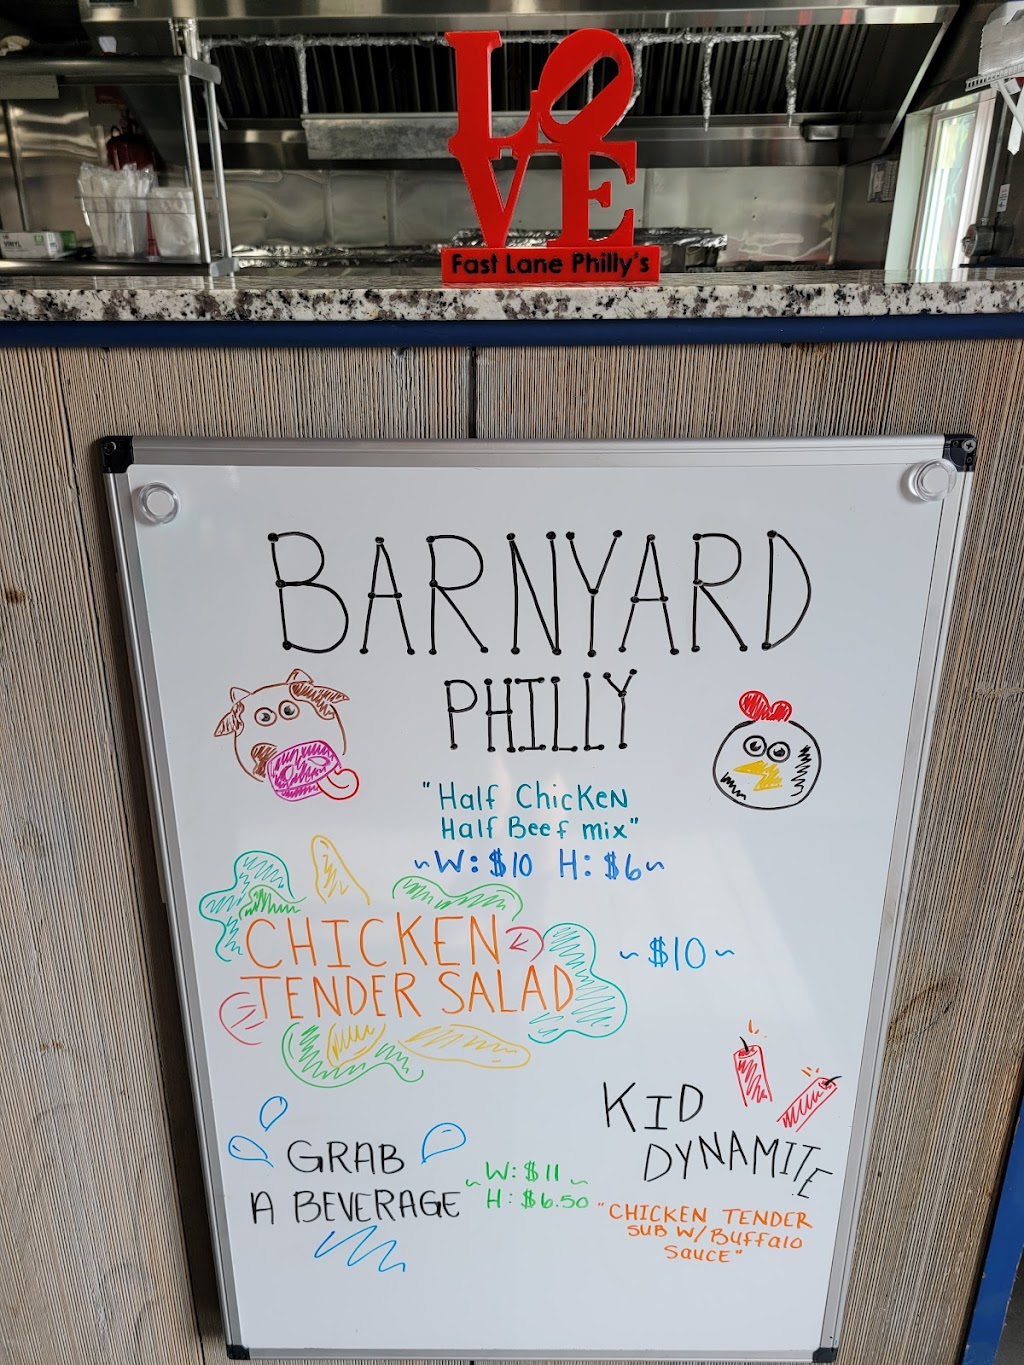 LOVE
Fast Lane Philly's
VINYL
BARNYARD
PHILLY
"Half Chicken
Half Beef mix"
~W: $10 H: $6~
CHICKEN
TENDER SALAD
~$10~
KID
DYNAMITE
"CHICKEN TENDER
SUB W/ Buffalo
Sauce"
~W: $11~
H: $6.50
GRAB
A BEVERAGE